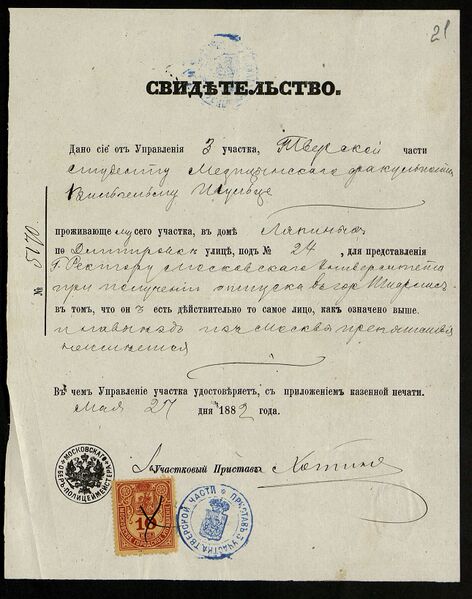 21
СВИДѢТЕЛЬСТВО.
Дано сіе отъ Управленія 3 участка, Тверской части
студенту Медицинскаго факультета
Вильгельму Шульце
проживающему сего участка, въ домѣ Ляпиныхъ
по Дмитровкѣ улицѣ, подъ № 24, для представленія
Г. Ректору Московскаго Университета
при полученіи отпуска въ гор.
въ томъ, что онъ есть дѣйствительно то самое лицо, какъ означено выше.
и на выѣздъ изъ Москвы препятствій
неимѣется
Въ чемъ Управленіе участка удостовѣряетъ, съ приложеніемъ казенной печати.
Мая 27 дня 1882 года.
Участковый Приставъ
№ 5170
МОСКОВСКАГО ОБЕРЪ-ПОЛИЦЕЙМЕЙСТЕРА
10
ПРИСТАВЪ 3 УЧАСТКА ТВЕРСКОЙ ЧАСТИ